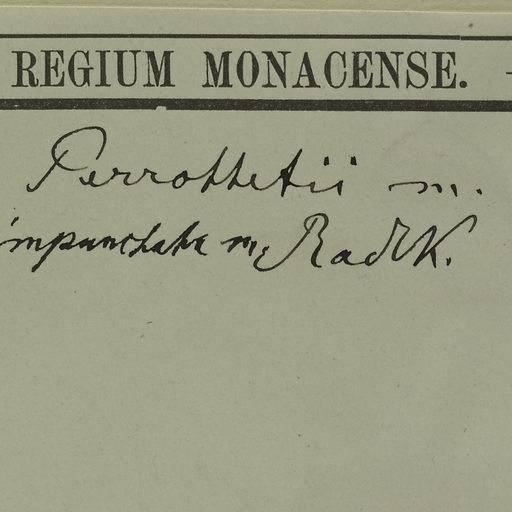 REGIUM MONACENSE. -
Perrottetii m.
impunctata m. Radlk.